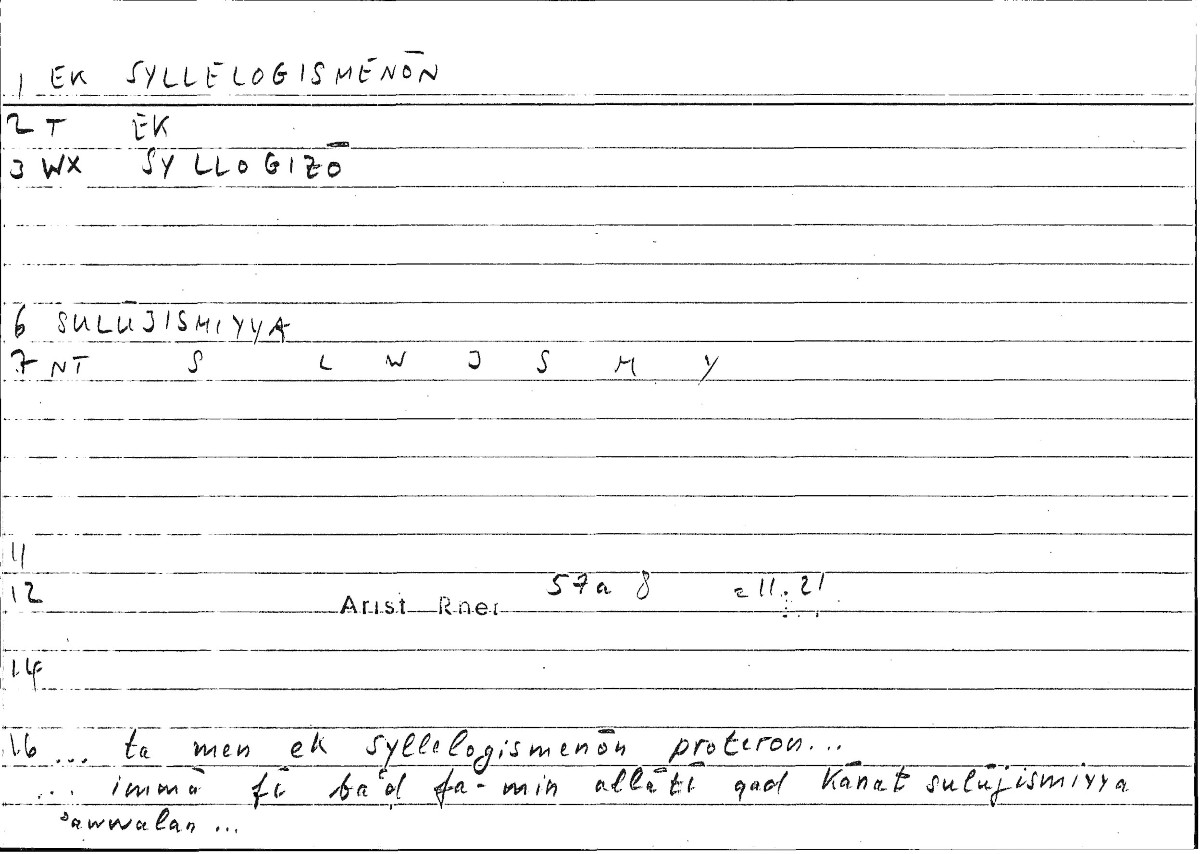 1 EK SYLLELOGISMENŌN
2 T EK
3 WX SYLLOGIZŌ
6 SULŪJISMIYYA
7 NT S L W J S M Y
11
12 Arist Rhet 57a 8 = 11.21
14
16 ... ta men ek syllelogismenōn proteron...
... immā fī baʿḍ fa-min allātī qad kānat sulūjismiyya
ʾawwalan ...